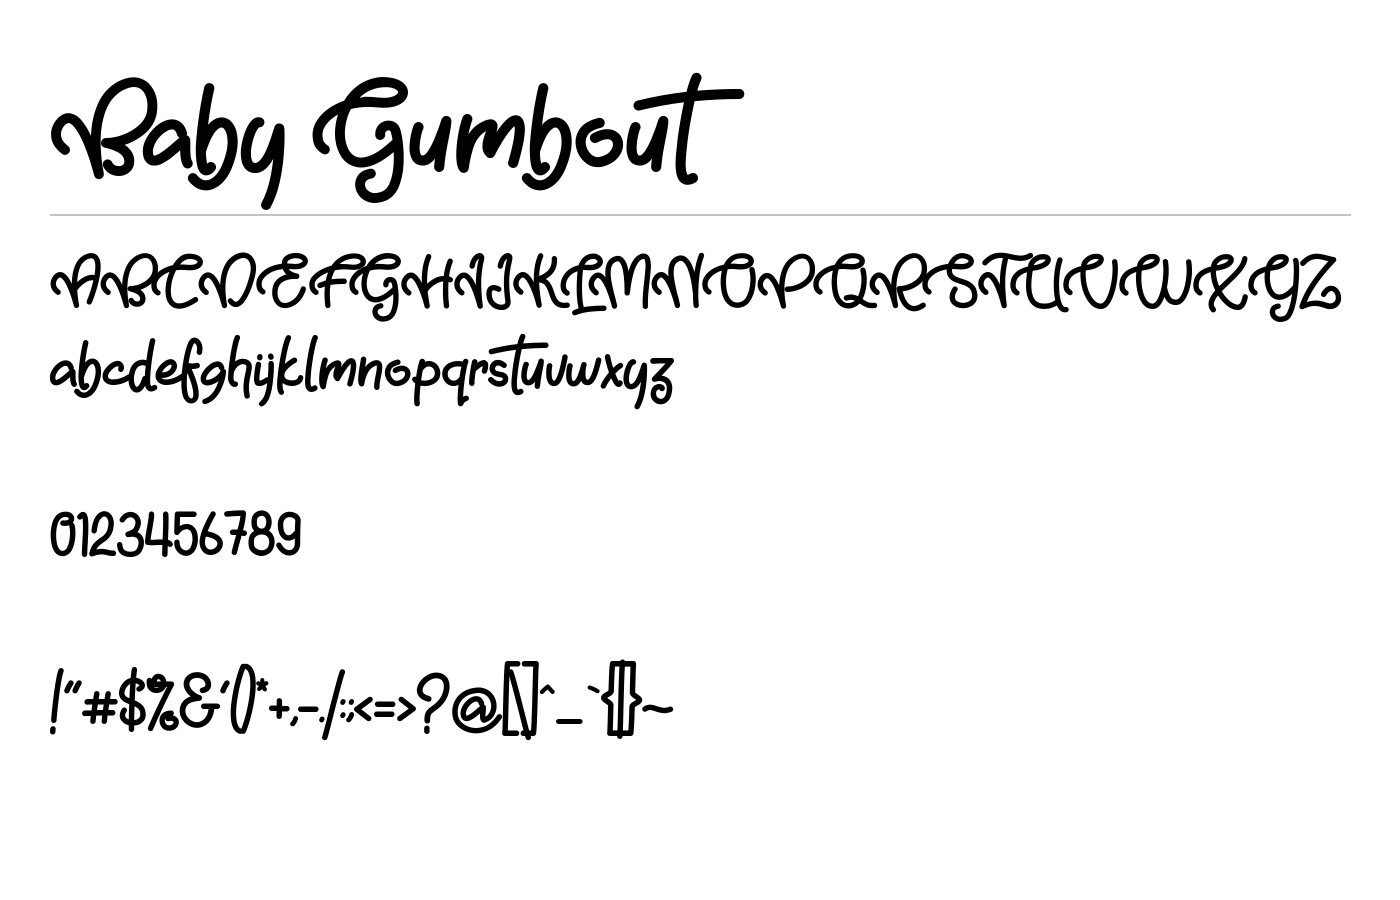 Baby Gumbout
ABCDEFGHIJKLMNOPQRSTUVWXYZ
abcdefghijklmnopqrstuvwxyz
0123456789
!"#$%&'()*+,-./:;<=>?@[\]^_`{|}~